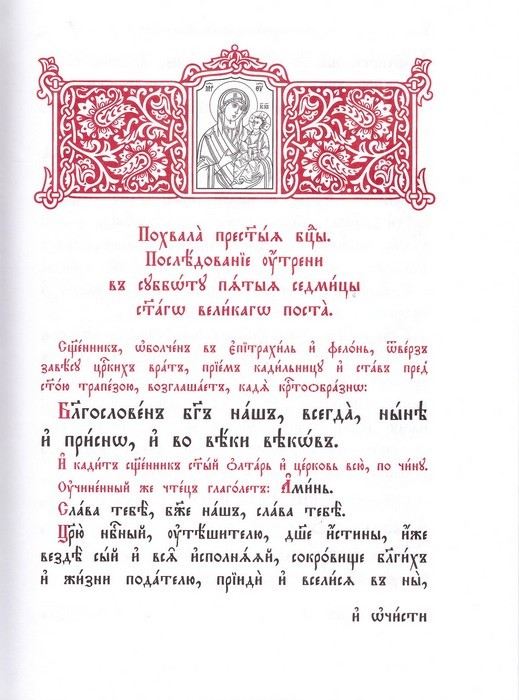 ІИ҃ ХС҃
Похвала̀ прест҃ы́ѧ бцⷣы.
Послѣ́дованїе ᲂу҆́трени
въ сꙋббѡ́тꙋ пѧ́тыѧ седми́цы
ст҃а́гѡ вели́кагѡ поста̀.
Сщ҃е́нникъ, ѡ҆болче́нъ въ є҆пїтрахи́ль и҆ фело́нь, ѿве́рзъ
завѣ́сꙋ црⷭ҇кихъ вра́тъ, прїе́мъ кади́льницꙋ и҆ ста́въ пред̾
ст҃о́ю трапе́зою, возглаша́етъ, кадѧ̀ крⷭ҇тоѻбра́знѡ:
Бл҃гослове́нъ бг҃ъ на́шъ, всегда̀, ны́нѣ
и҆ при́снѡ, и҆ во вѣ́ки вѣкѡ́въ.
И҆ кади́тъ сщ҃е́нникъ ст҃ы́й ѻ҆лта́рь и҆ це́рковь всю̀, по чи́нꙋ.
Оу҆чине́нный же чте́цъ глаго́летъ: А҆ми́нь.
Сла́ва тебѣ̀, бж҃е на́шъ, сла́ва тебѣ̀.
Цр҃ю̀ нбⷭ҇ный, ᲂу҆тѣ́шителю, дш҃е и҆́стины, и҆́же
вездѣ̀ сы́й и҆ всѧ̑ и҆сполнѧ́ѧй, сокро́вище бл҃ги́хъ
и҆ жи́зни пода́телю, прїидѝ и҆ всели́сѧ въ ны̀,
и҆ ѡ҆чи́сти